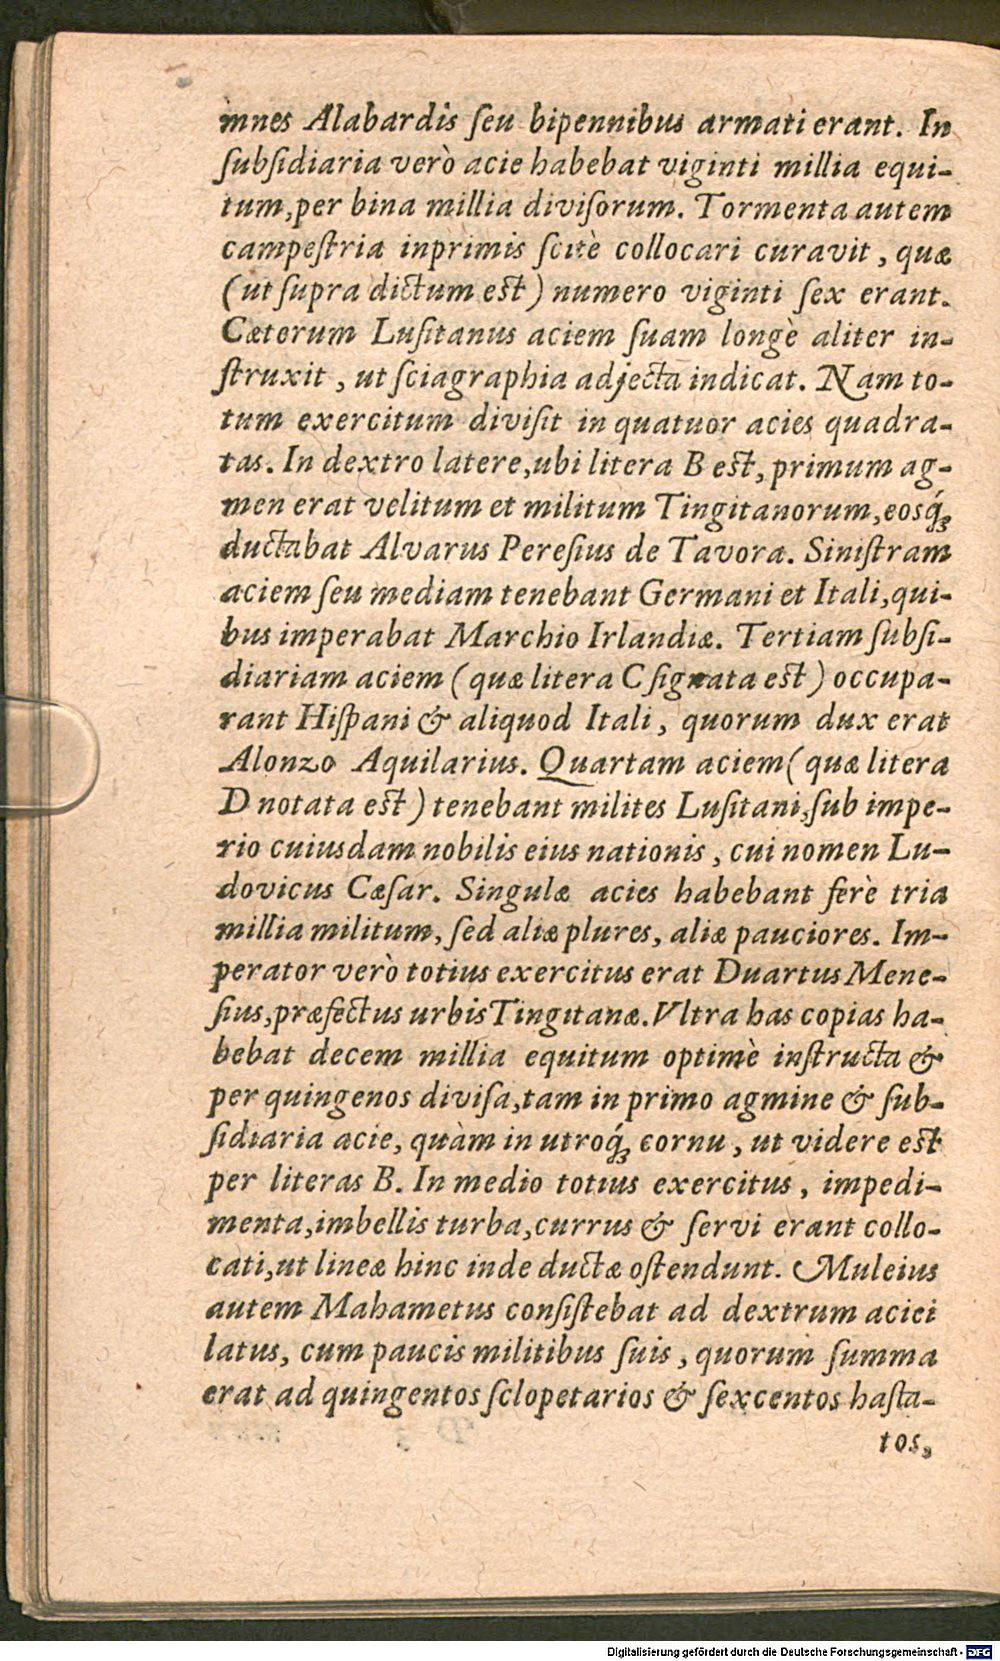 mnes Alabardis ſeu bipennibus armati erant. In
ſubſidiaria verò acie habebat viginti millia equi-
tum, per bina millia diviſorum. Tormenta autem
campeſtria inprimis ſcitè collocari curavit, quæ
(ut ſupra dictum est) numero viginti ſex erant.
Cæterum Luſitanus aciem ſuam longè aliter in-
ſtruxit, ut ſciagraphia adjecta indicat. Nam to-
tum exercitum diviſit in quatuor acies quadra-
tas. In dextro latere, ubi litera B est, primum ag-
men erat velitum et militum Tingitanorum, eosq́ꝫ
ductabat Alvarus Pereſius de Tavora. Siniſtram
aciem ſeu mediam tenebant Germani et Itali, qui-
bus imperabat Marchio Irlandiæ. Tertiam ſubſi-
diariam aciem (quæ litera C ſignata est) occupa-
rant Hiſpani & aliquod Itali, quorum dux erat
Alonzo Aquilarius. Quartam aciem (quæ litera
D notata est) tenebant milites Luſitani, ſub impe-
rio cuiusdam nobilis eius nationis, cui nomen Lu-
dovicus Cæſar. Singulæ acies habebant ferè tria
millia militum, ſed aliæ plures, aliæ pauciores. Im-
perator verò totius exercitus erat Duartus Mene-
ſius, præfectus urbis Tingitanæ. Vltra has copias ha-
bebat decem millia equitum optimè inſtructa &
per quingenos diviſa, tam in primo agmine & ſub-
ſidiaria acie, quàm in utroq́ꝫ cornu, ut videre est
per literas B. In medio totius exercitus, impedi-
menta, imbellis turba, currus & ſervi erant collo-
cati, ut lineæ hinc inde ductæ oſtendunt. Muleius
autem Mahametus conſiſtebat ad dextrum aciei
latus, cum paucis militibus ſuis, quorum ſumma
erat ad quingentos ſclopetarios & ſexcentos haſta-
tos,
Digitalisierung gefördert durch die Deutsche Forschungsgemeinschaft - DFG